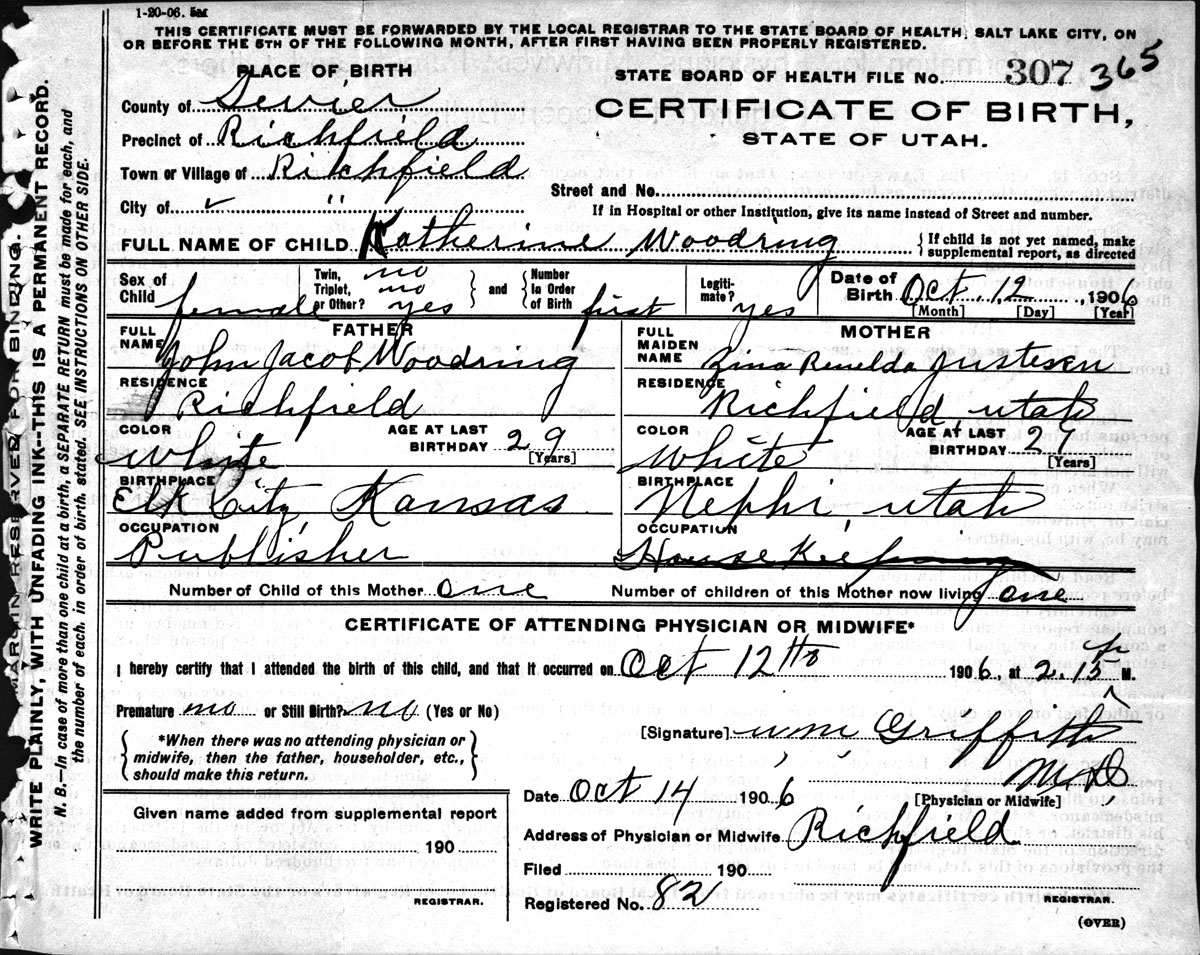 1-20-06. 5M
THIS CERTIFICATE MUST BE FORWARDED BY THE LOCAL REGISTRAR TO THE STATE BOARD OF HEALTH, SALT LAKE CITY, ON
OR BEFORE THE 5TH OF THE FOLLOWING MONTH, AFTER FIRST HAVING BEEN PROPERLY REGISTERED.
PLACE OF BIRTH
County of Sevier
Precinct of Richfield
Town or Village of Richfield
City of "
STATE BOARD OF HEALTH FILE No. 307 365
CERTIFICATE OF BIRTH,
STATE OF UTAH.
Street and No.
If in Hospital or other Institution, give its name instead of Street and number.
FULL NAME OF CHILD Katherine Woodring { If child is not yet named, make
supplemental report, as directed
Sex of Child female
Twin, no
Triplet, no
or Other? yes
and { Number in Order of Birth first
Legitimate? yes
Date of Birth Oct. 12, 1906
[Month] [Day] [Year]
FATHER
FULL NAME John Jacob Woodring
RESIDENCE Richfield
COLOR White
AGE AT LAST BIRTHDAY 29
[Years]
BIRTHPLACE Elk City, Kansas
OCCUPATION Publisher
MOTHER
FULL MAIDEN NAME Zina Justesen
RESIDENCE Richfield, utah
COLOR White
AGE AT LAST BIRTHDAY
[Years]
BIRTHPLACE Nephi, utah
OCCUPATION House Keeping
Number of Child of this Mother one
Number of children of this Mother now living one
CERTIFICATE OF ATTENDING PHYSICIAN OR MIDWIFE*
I hereby certify that I attended the birth of this child, and that it occurred on Oct 12th 1906, at 2.15 M.
Premature no or Still Birth? no (Yes or No)
{ *When there was no attending physician or
midwife, then the father, householder, etc.,
should make this return. }
[Signature] Wm Griffith
M D
[Physician or Midwife]
Date Oct 14 1906
Address of Physician or Midwife Richfield
Filed 190
Registered No. 82
REGISTRAR.
(OVER)
Given name added from supplemental report
190
REGISTRAR.
MARGIN RESERVED FOR BINDING.
WRITE PLAINLY, WITH UNFADING INK--THIS IS A PERMANENT RECORD.
N. B.--In case of more than one child at a birth, a SEPARATE RETURN must be made for each, and
the number of each, in order of birth, stated. SEE INSTRUCTIONS ON OTHER SIDE.